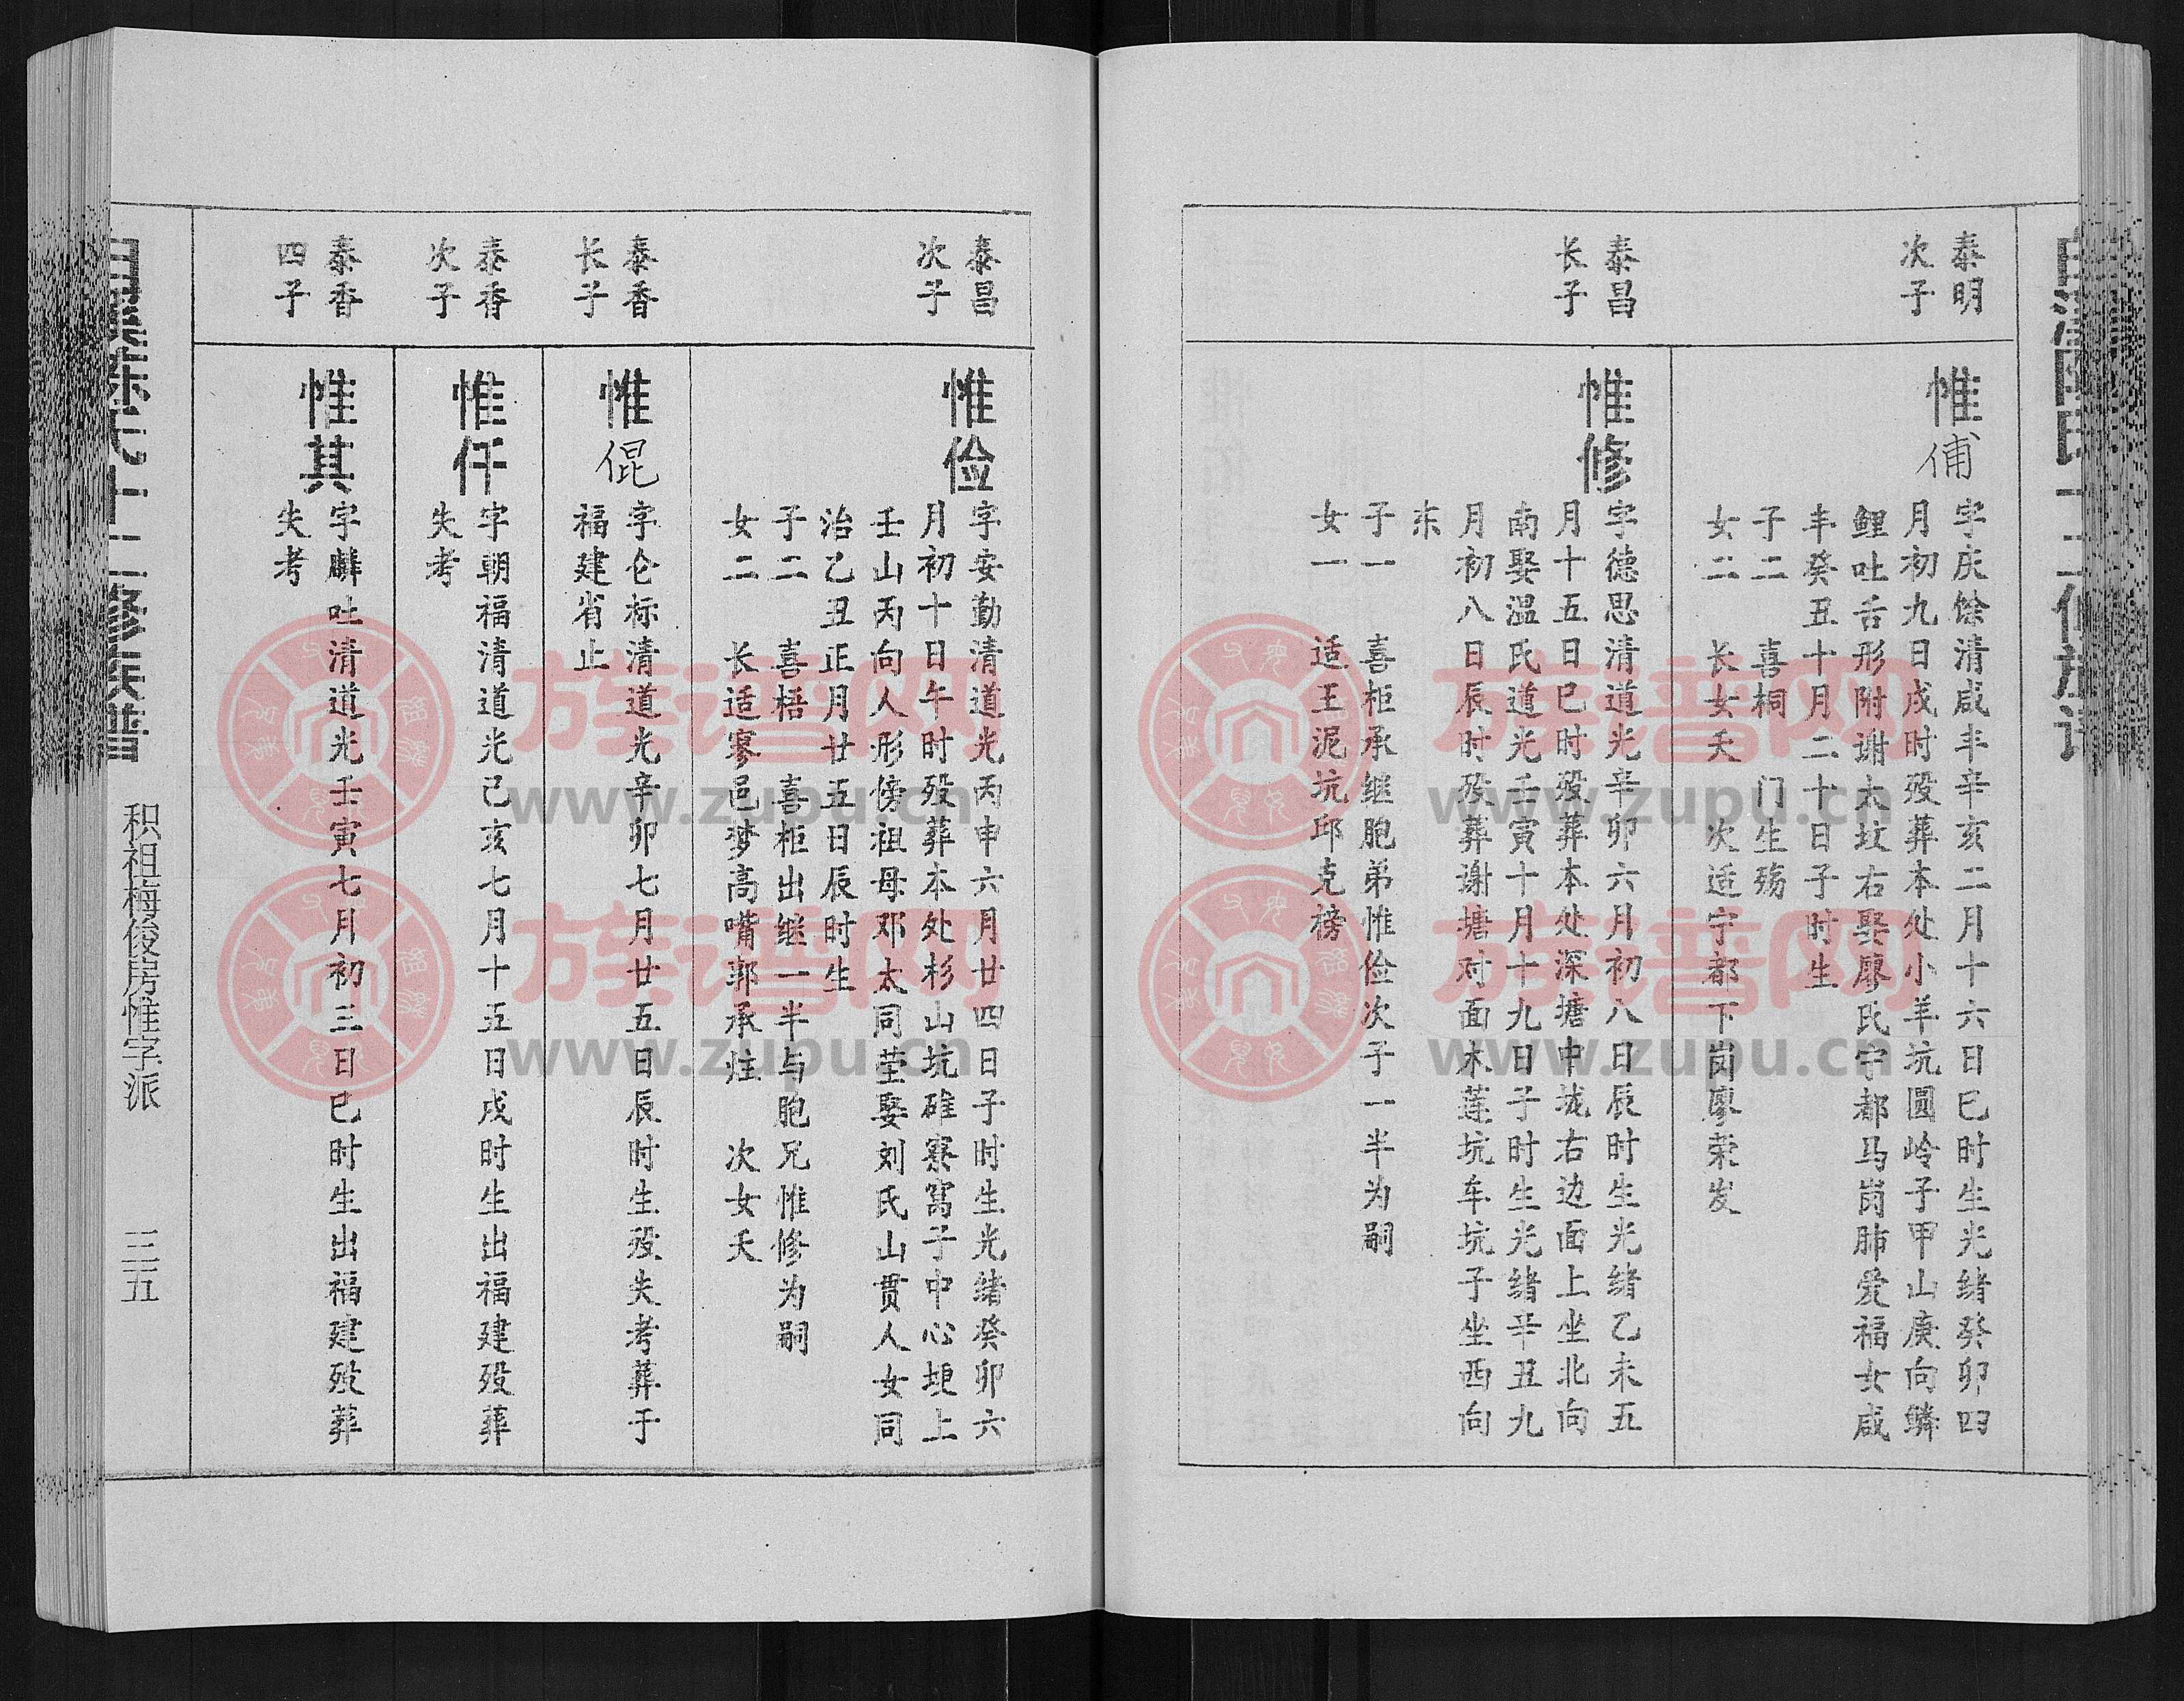 泰明
次子
惟俌
字庆馀清咸丰辛亥二月十六日巳时生光绪癸卯四
月初九日戌时殁葬本处小羊坑圆岭子甲山庚向鳞
鲤吐舌形附谢太坟右娶廖氏宁都马岗肺爱福女咸
丰癸丑十月二十日子时生
子二 喜桐 门生殇
女二 长女夭 次适宁都下岗廖荣发
泰昌
长子
惟修
字德思清道光辛卯六月初八日辰时生光绪乙未五
月十五日巳时殁葬本处深塘中垅右边面上坐北向
南娶温氏道光壬寅十月十九日子时生光绪辛丑九
月初八日辰时殁葬谢塘对面木莲坑车坑子坐西向
东
子一 喜柜承继胞弟惟俭次子一半为嗣
女一 适王泥坑邱克榜
泰昌
次子
惟俭
字安勤清道光丙申六月廿四日子时生光绪癸卯六
月初十日午时殁葬本处杉山坑碓寨窝子中心埂上
壬山丙向人形傍祖母邓太同茔娶刘氏山贯人女同
治乙丑正月廿五日辰时生
子二 喜梧 喜柜出继一半与胞兄惟修为嗣
女二 长适寥邑梦高嘴郭承炷 次女夭
泰香
长子
惟倱
字仑标清道光辛卯七月廿五日辰时生殁失考葬于
福建省止
泰香
次子
惟仟
字朝福清道光己亥七月十五日戌时生出福建殁葬
失考
泰香
四子
惟其
字麟吐清道光壬寅七月初三日巳时生出福建殁葬
失考
积祖梅俊房惟字派
三五
族谱网
www.zupu.cn
族谱网
www.zupu.cn
族谱网
www.zupu.cn
族谱网
www.zupu.cn